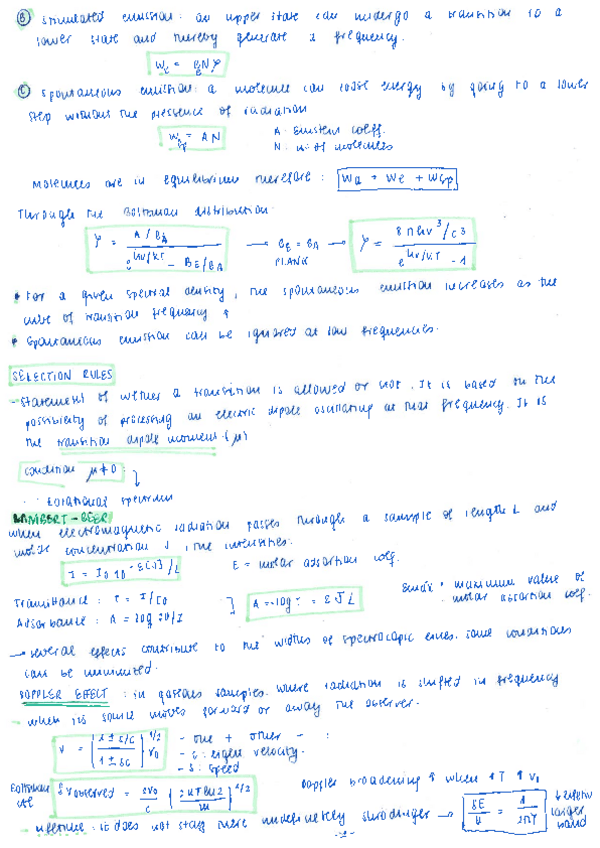 (B) stimulated emission: an upper state can undergo a transition to a
lower state and thereby generate a frequency.
We = BeNρ
(C) spontaneous emission: a molecule can loose energy by going to a lower
step without the presence of radiation
Wsp = AN
A: Einstein coeff.
N: nº of molecules
Molecules are in equilibrium therefore: Wa = We + Wsp
Through the Boltzman distribution
ρ = A/BA / e^hν/kT − BE/BA
→ BE = BA →
PLANK
ρ = 8πhν³/c³ / e^hν/kT − 1
* For a given spectral density, the spontaneous emission increases as the
cube of transition frequency ↑
* Spontaneous emission can be ignored at low frequencies.
SELECTION RULES
- Statement of wether a transition is allowed or not. It is based on the
possibility of processing an electric dipole oscillating at that frequency. It is
the transition dipole moment (μ)
condition μ≠0
Rotational spectrum
LAMBERT-BEER
When electromagnetic radiation passes through a sample of length L and
molar concentration J, the intensities:
I = I0 10^-ε[J]L
E = molar absortion coef.
Transmitance: T = I/I0
Absorbance: A = log I0/I
A = -log T = εJL
Emáx = maximum value of
molar absortion coef.
→ several effects contribute to the widths of spectroscopic lines. Some contributions
can be minimized.
DOPPLER EFFECT: in gaseous samples. Where radiation is shifted in frequency
- when its source moves forward or away the observer.
ν = (1 ± s/c / 1 ± s/c)^1/2 ν0
- one + other -
- c: light velocity.
- s: speed
Boltzman
δν observed = 2ν0/c (2kT ln2/m)^1/2
Doppler broadening ↑ when ↑T ↑ν0
- lifetime: it does not stay there indefinitely Shrödinger →
δE/h = 1/2πτ
↓ lifetime
larger
band